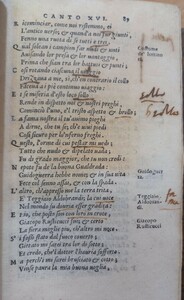 CANTO XVI. 89
R icominciar, come noi ristemmo, ei
L'antico uerso; & quando a noi fur giunti,
Fenno una ruota di se tutti e trei,
Q ual soleano i campion far nudi & unti
Auisando lor presa & lor uantaggio
Prima che sien tra lor battuti & punti;
C osi rotando ciascuno il uisaggio
Drizzaua a me, si ch'en contrario il collo
Faceua a i pie continuo uiaggio
E se miseria d'esto loco sollo
Rende in dispetto noi & nostri preghi,
Comincio l'uno, e'l tristo aspetto e brollo;
L a fama nostra il tuo animo pieghi
A dirne, chi tu se, che i uiui piedi
Cosi sicuro per l'inferno freghi.
Q uesti, l'orme di cui pestar mi uedi
Tutto che nudo & dipelato uada,
Fu di grado maggior, che tu non credi.
N epote fu de la buona Gualdrada:
Guidoguerra hebbe nome; & in sua uita
Fece col senno assai, & con la spada.
Guidoguer
ra
L' altro, ch'appresso me la rena trita,
E Teggiaio Aldobrandi; la cui uoce
Nel mondo su dourebbe esser gradita:
Teggiaio
Aldobran
E t io, che posto son con loro in croce,
Iacopo Rusticucci fui: & certo
La fiera moglie piu ch'altro mi noce.
Giacopo
Rusticucci
S' i fussi stato dal fuoco couerto,
Gittato mi sarei tra lor disotto;
Et credo, ch'el dottor l'hauria sofferto.
M a perch'i mi sarei bruciato & cotto,
Vinse paura la mia buona uoglia,